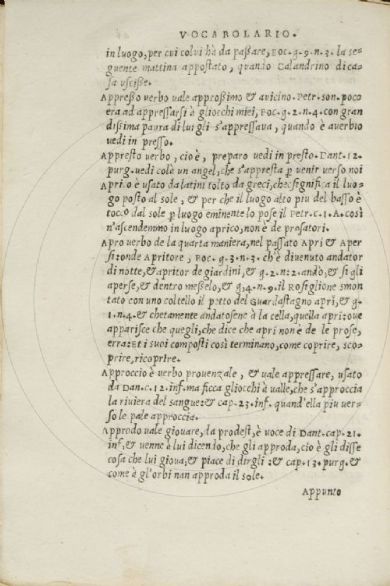 VOCABOLARIO.
in luogo, per cui colui ha da passare, BOC. g. 9. n. 3. la se
guente mattina appostato, quando Calandrino di ca
sa uscisse.
Appresso verbo uale approssimo & avicino. Petr. son. poco
era ad appressarsi è gliocchi miei, BOC. g. 2. n. 4. con gran
dissima paura di lui gli s'appressava, quando è averbio
uedi in presso.
Appresto verbo, cio è, preparo uedi in presto. Dant. 12.
purg. uedi colè un angel, che s'appresta p̱ venir verso noi
Aprico è usato da latini tolto da greci, che significa il luo
go posto al sole, & per che il luogo alto piu del basso è
tocco dal sole p̱ luogo eminente lo pose il Petr. C. 1. A. così
n'ascendemmo in luogo aprico, non è de prosatori.
Apro verbo de la quarta maniera, nel passato Apri & Aper
si: onde Apritore, BOC. g. 3. n. 3. ch'è divenuto andator
di notte, & apritor de giardini, & g. 2. n: 2. andò, & si gli
aperse, & dentro messelo, & g. 4. n. 9. il Rosiglione smon
tato con uno coltello il petto del Guardastagno aprì, & g.
1. n. 4. & chetamente andatosene à la cella, quella aprì: oue
apparisce che quegli, che dice che apri non è de le prose,
erra: Et i suoi composti così terminano, come coprire, sco
prire, ricoprire.
Approccio è verbo provenzale, & uale appressare, usato
da DAN. C. 12. inf. ma ficca gliocchi è ualle, che s'approccia
la riviera del sangue: & cap. 23. inf. quand'ella piu ver
so le pale approccia.
Approdo uale giouare, da prodest, è voce di Dant. cap. 21.
inf, & uenne è lui dicendo, che gli approda, cio è gli disse
cosa che lui gioua, & piace di dirgli: & cap. 13. purg. &
come è gl'orbi nan approda il sole.
Appunto